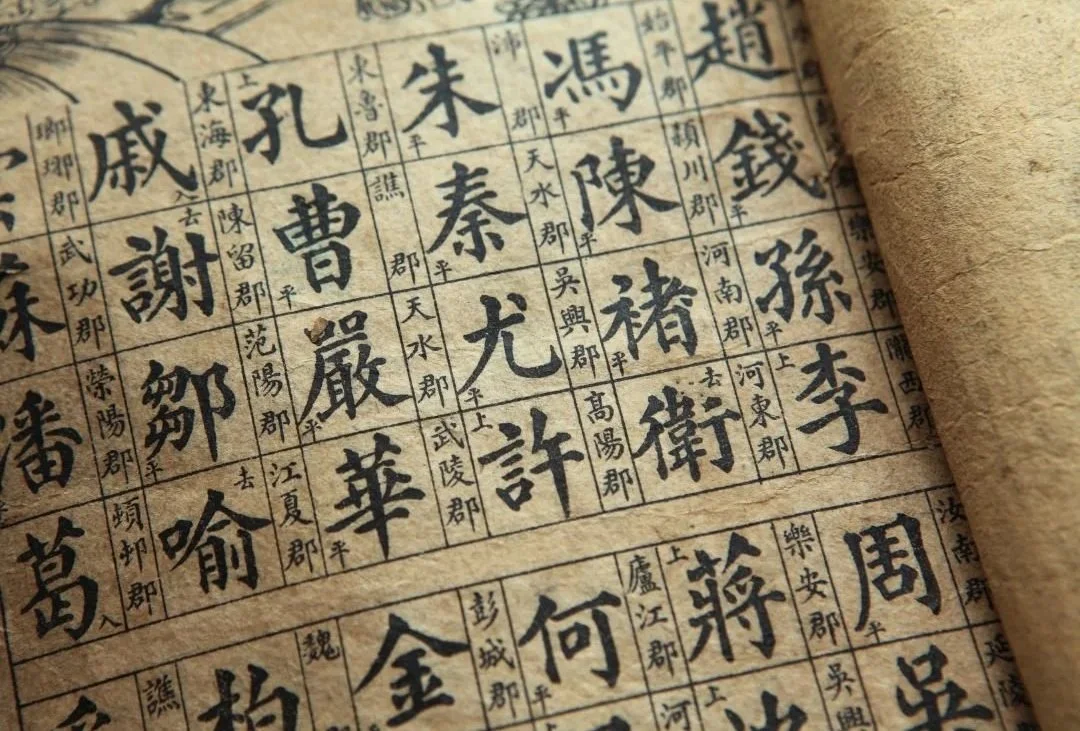 樂安郡 隴西郡
趙 錢平 孫平 李上
始平郡 潁川郡 河南郡 河東郡
馮平 陳平 褚平 衛去
沛郡 天水郡 吳興郡 高陽郡
朱平 秦平 尤平 許上
東魯郡 譙郡 天水郡 武陵郡
孔上 曹平 嚴平 華平
東海郡 陳留郡 范陽郡 江夏郡
戚入 謝去 鄒平 喻去
瑯琊郡 武功郡 滎陽郡 郡
蘇 潘 葛入
汝南郡 延陵
周平 吳
樂安郡 吳興
蔣上 沈上
廬江郡 河
何平
彭城郡
金
魏
柏
譙